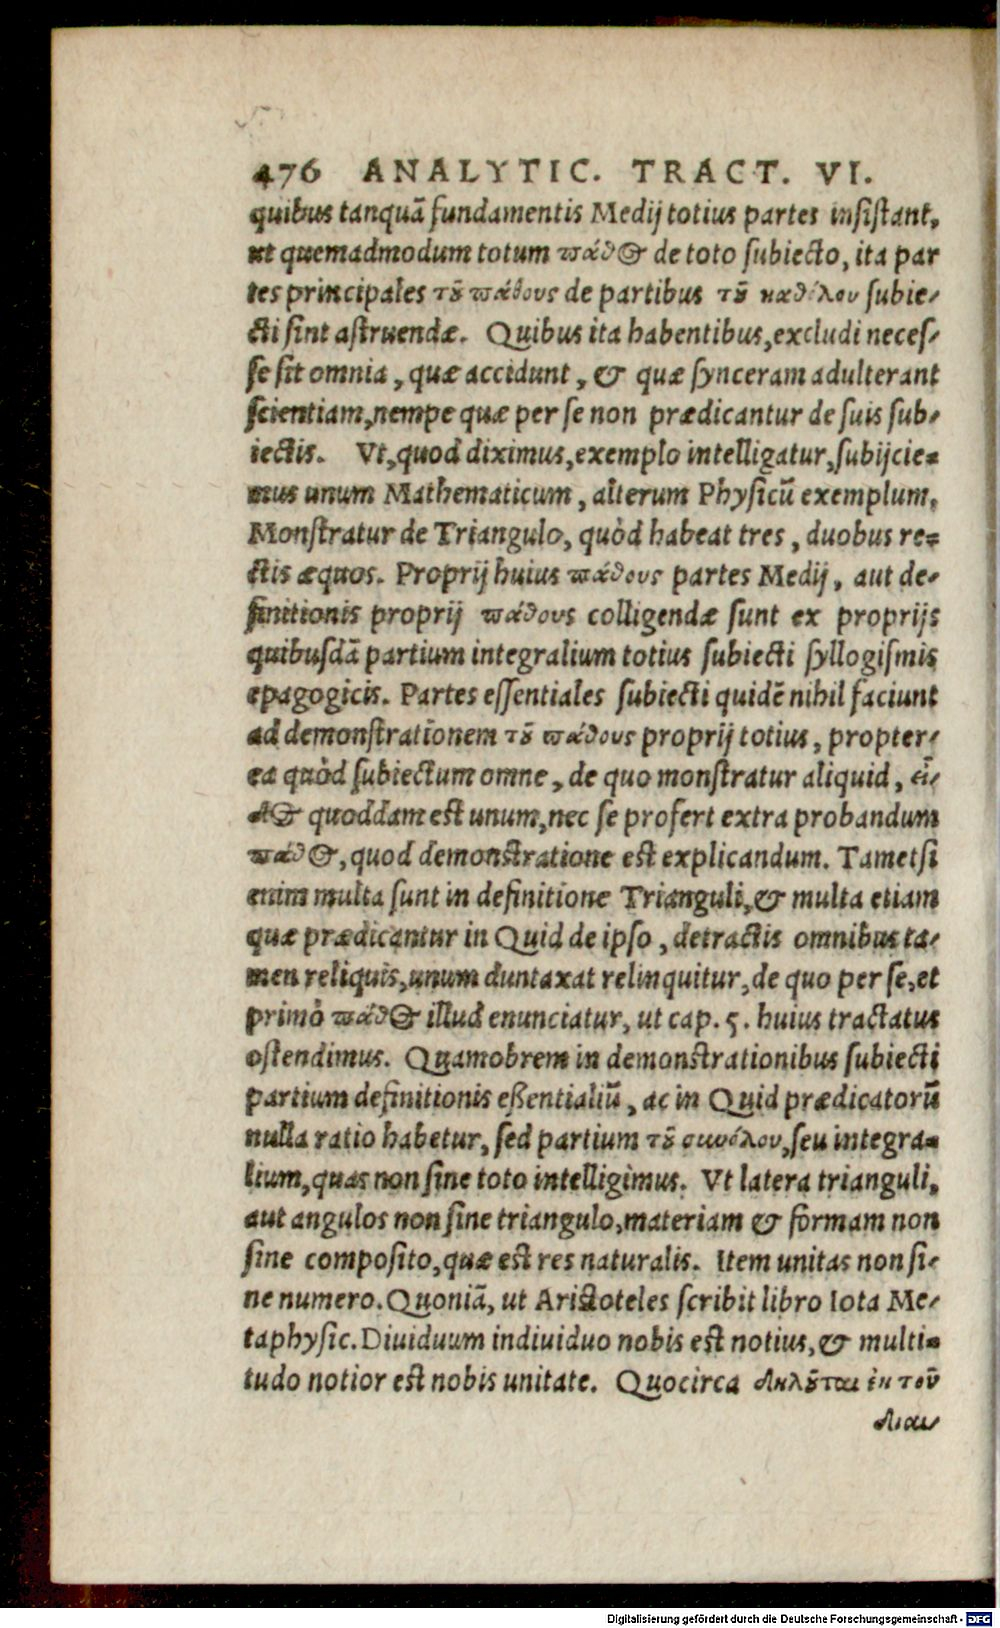 476 ANALYTIC. TRACT. VI.
quibus tanquã fundamentis Medij totius partes insistant,
ut quemadmodum totum πάθος de toto subiecto, ita par
tes principales τοῦ πάθους de partibus τοῦ καθόλου subie-
cti sint astruendæ. Quibus ita habentibus, excludi neces-
se sit omnia, quæ accidunt, & quæ synceram adulterant
scientiam, nempe quæ per se non prædicantur de suis sub-
iectis. Vt, quod diximus, exemplo intelligatur, subijcie-
mus unum Mathematicum, alterum Physicũ exemplum.
Monstratur de Triangulo, quòd habeat tres, duobus re-
ctis æquos. Proprij huius πάθους partes Medij, aut de-
finitionis proprij πάθους colligendæ sunt ex proprijs
quibusdã partium integralium totius subiecti syllogismis
epagogicis. Partes essentiales subiecti quidẽ nihil faciunt
ad demonstrationem τοῦ πάθους proprij totius, propter-
ea quòd subiectum omne, de quo monstratur aliquid, εἶ-
δος quoddam est unum, nec se profert extra probandum
πάθος, quod demonstratione est explicandum. Tametsi
enim multa sunt in definitione Trianguli, & multa etiam
quæ prædicantur in Quid de ipso, detractis omnibus ta-
men reliquis, unum duntaxat relinquitur, de quo per se, et
primò πάθος illud enunciatur, ut cap. 5. huius tractatus
ostendimus. Quamobrem in demonstrationibus subiecti
partium definitionis eßentialiũ, ac in Quid prædicatorũ
nulla ratio habetur, sed partium τοῦ συνόλου, seu integra-
lium, quas non sine toto intelligimus. Vt latera trianguli,
aut angulos non sine triangulo, materiam & formam non
sine composito, quæ est res naturalis. Item unitas non si-
ne numero. Quoniã, ut Aristoteles scribit libro Iota Me-
taphysic. Diuiduum indiuiduo nobis est notius, & multi-
tudo notior est nobis unitate. Quocirca δηλοῦται ἐκ τοῦ
διαι-
Digitalisierung gefördert durch die Deutsche Forschungsgemeinschaft - DFG